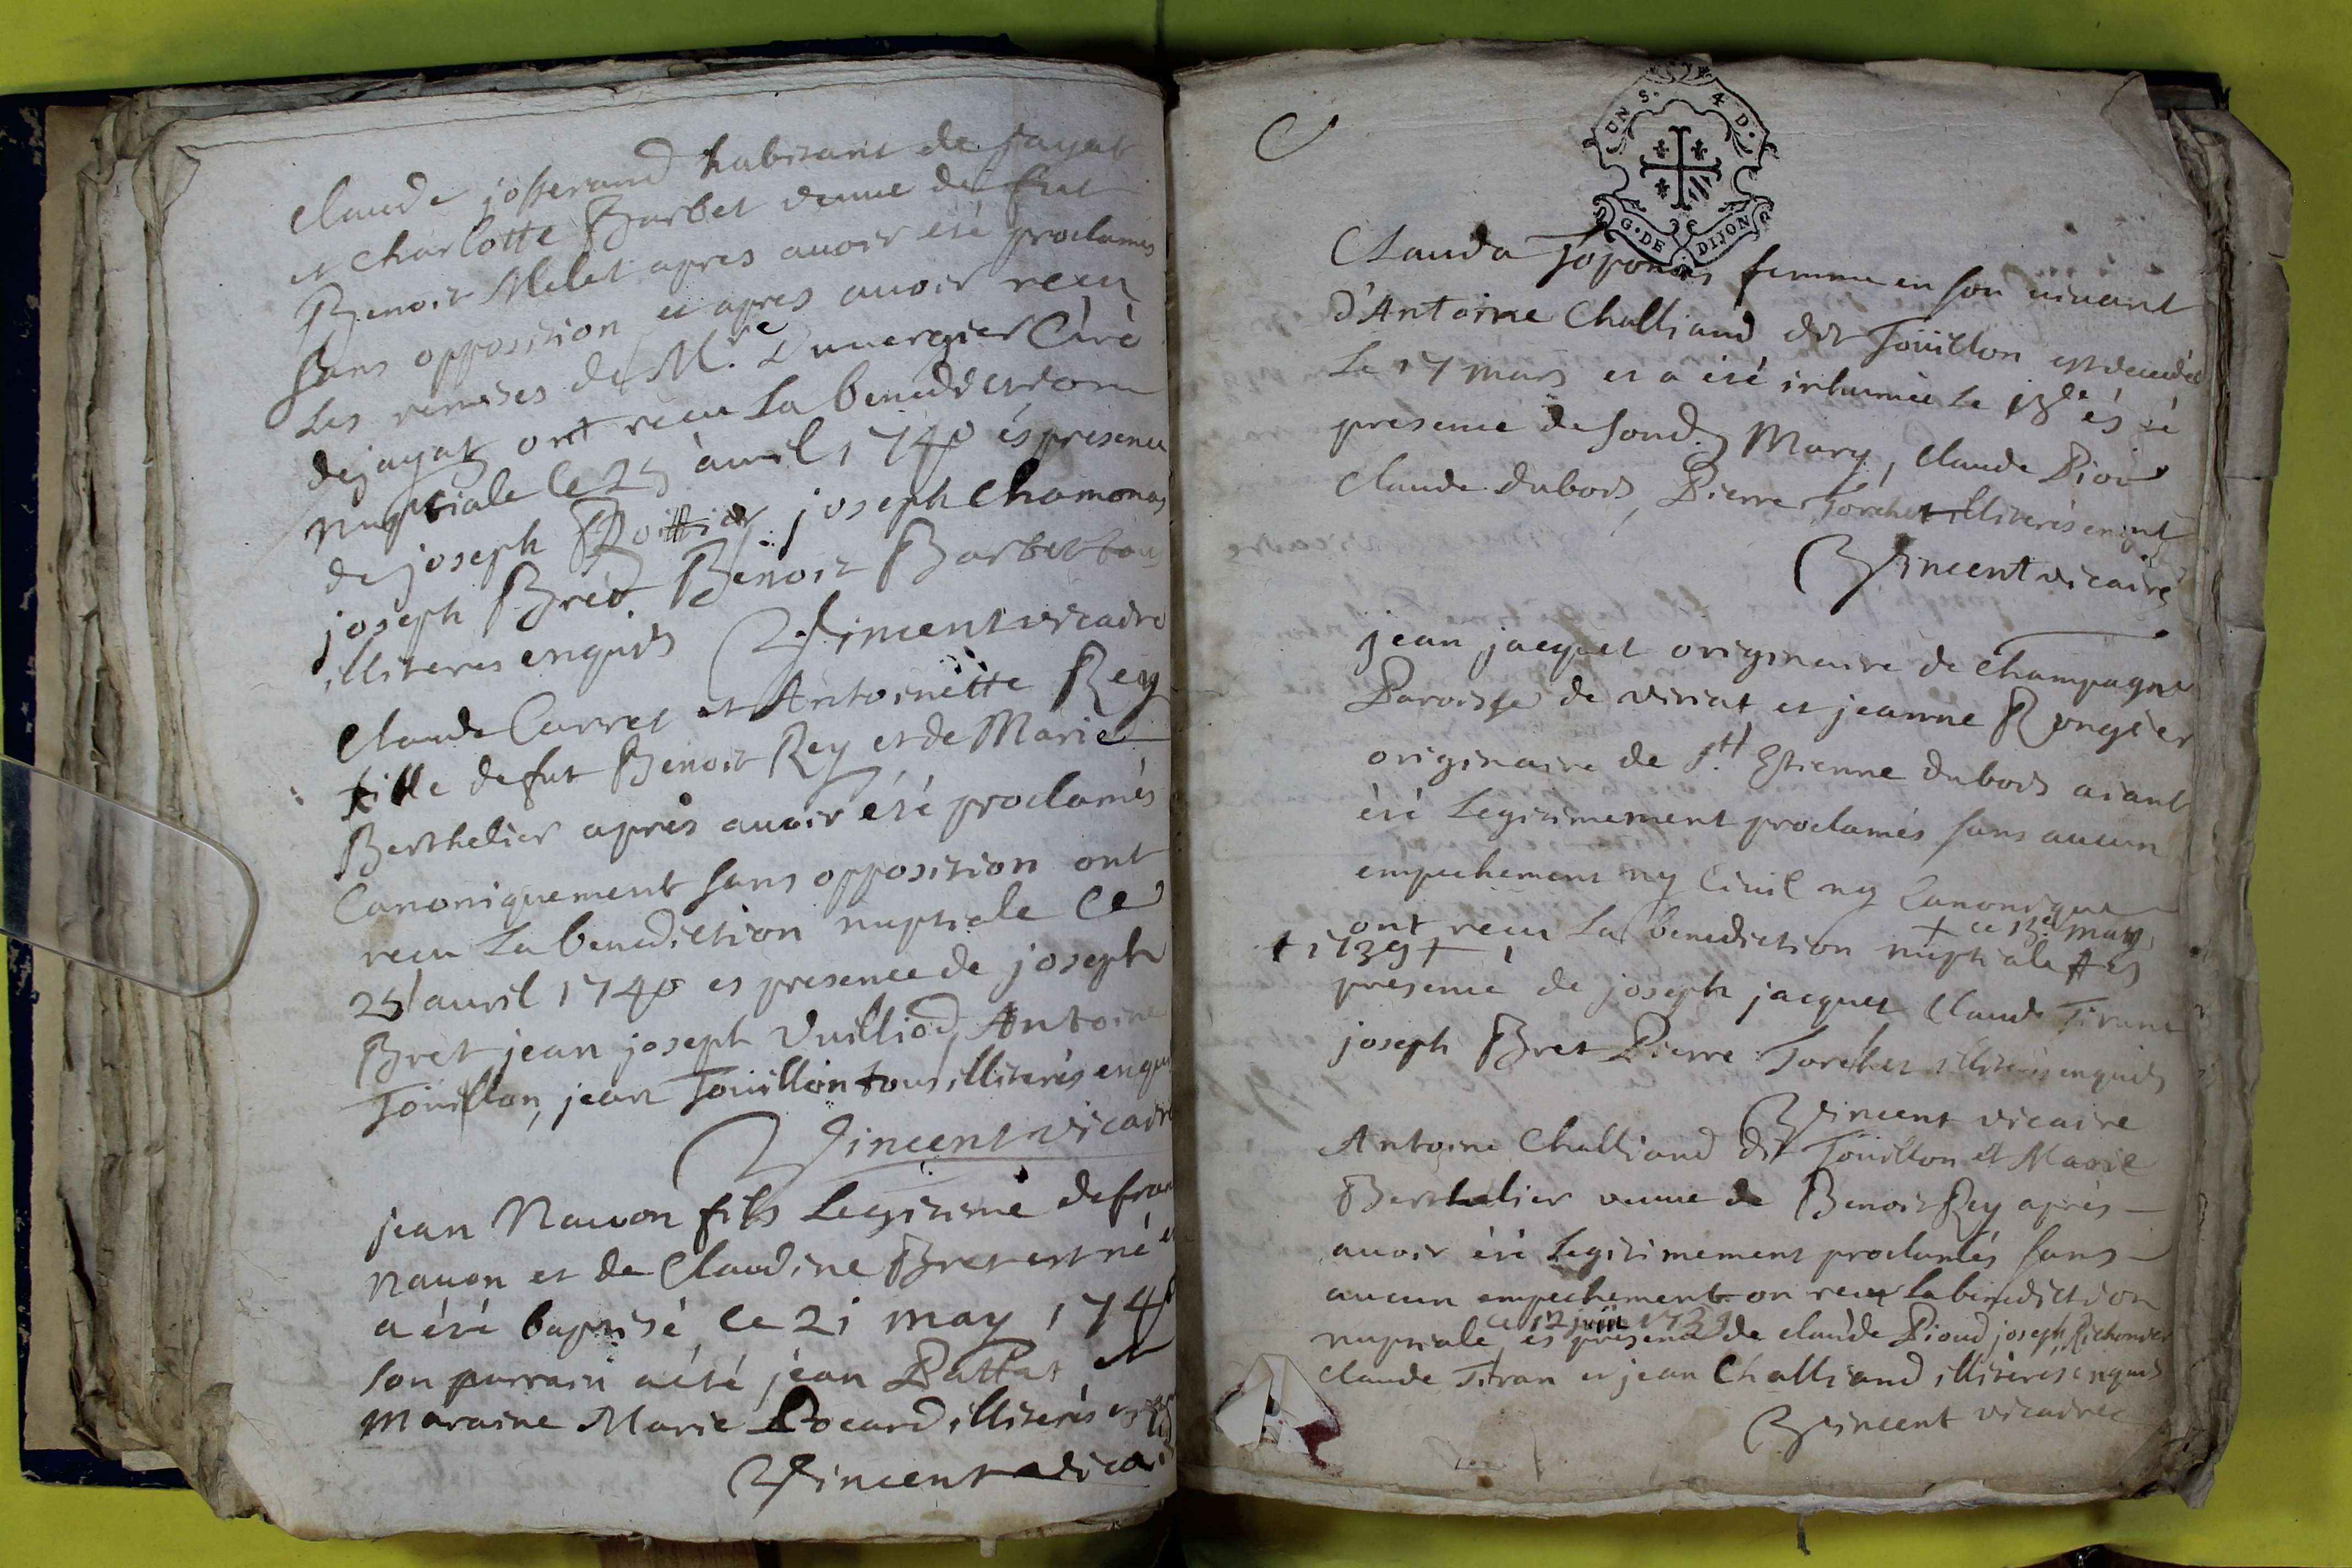 Claude josserand habitant de jayat
et Charlotte Barbet veuue de fut
Benoit Milet apres auoir eté proclamés
sans opposition et apres auoir recu
Les remises de M.re Duuergier Curé
dejayat ont recu La benediction
nuptiale le 25 avril 1740 és presence
de joseph joseph Chamonas
joseph Bret Benoit Barbet tous
illiteres enquis Vincent vicaire
Claude Carret et Antoinette Rey
fille defut Benoit Rey et de Marie
Berthelier aprés auoir été proclamés
Canoniquement sans opposition ont
recu La benediction nuptiale Ce
25 auril 1740 es presence de joseph
Bret jean joseph Vuilliod Antoine
Toüillon, jean Toüillon tous illiterés enquis
Vincent vicaire
jean Nauon fils Legitime de
nauon et de Claudine Bret est né et
a été baptisé le 21 may 1740
son parrain a été jean Pattat et
maraine Marie Bocard illiterés
Vincent vicai
UN S. 4 D.
G. DE DIJON
Clauda femme en son uiuant
d'Antoine Challiand dit Toüillon est decedée
Le 17 mars et a été inhumée Le 18e és
presence de soud. Mary, Claude Pioud
Claude dubois, Pierre Torchet illiterés enquis
Vincent vicaire
jean jacquet originaire de Champagne
Paroisse de viriat et jeanne Rongier
originaire de St Estienne dubois aiant
été Legitimement proclamés sans aucun
empechement ny Ciuil ny Canonique
ont recu La benediction nuptiale + ce 13e may
+ 1739 + és
presence de joseph jacquet Claude Tiran
joseph Bret Pierre Torchet illiterés enquis
Vincent vicaire
Antoine Challiand dit Toüillon et Marie
Berthelier veuue de Benoit Rey aprés
auoir été Legitimement proclamés sans
aucun empechement on recu La benediction
ce 12 juin 1739
nuptiale és presence de claude Pioud joseph
claude Tiran et jean Challiand illiterés enquis
Vincent vicaire